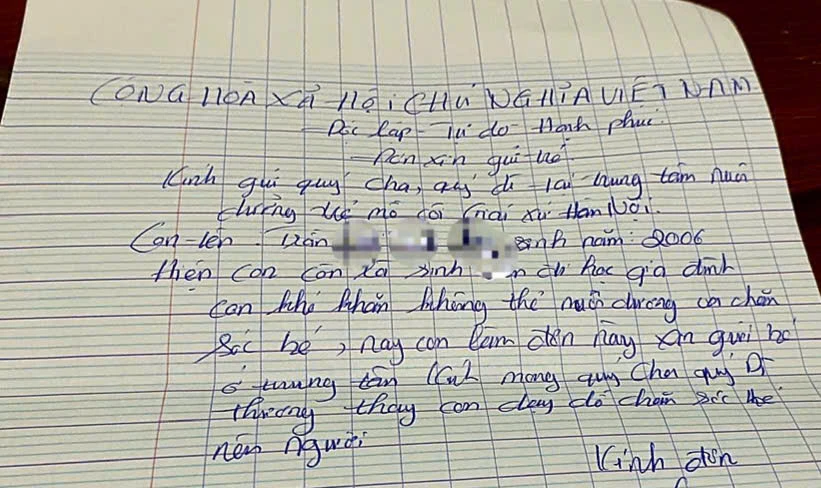 CÔNG HOÀ XÃ HỘI CHỦ NGHĨA VIỆT NAM
Độc lập - Tự do - Hạnh phúc.
- Đơn xin gửi trẻ.
Kính gửi quý cha, quý dì tại trung tâm nuôi
dưỡng trẻ mồ côi giáo xứ
Con tên: Trần sinh năm: 2006
Hiện con còn là sinh đi học gia đình
con khó khăn không thể nuôi dương và chăn
sóc bé, nay con làm đơn này xin gửi bé
ở trung tân kính mong quý Cha quý Dì
thương thay con dạy dỗ chăn sóc bé
nên người
Kính đơn